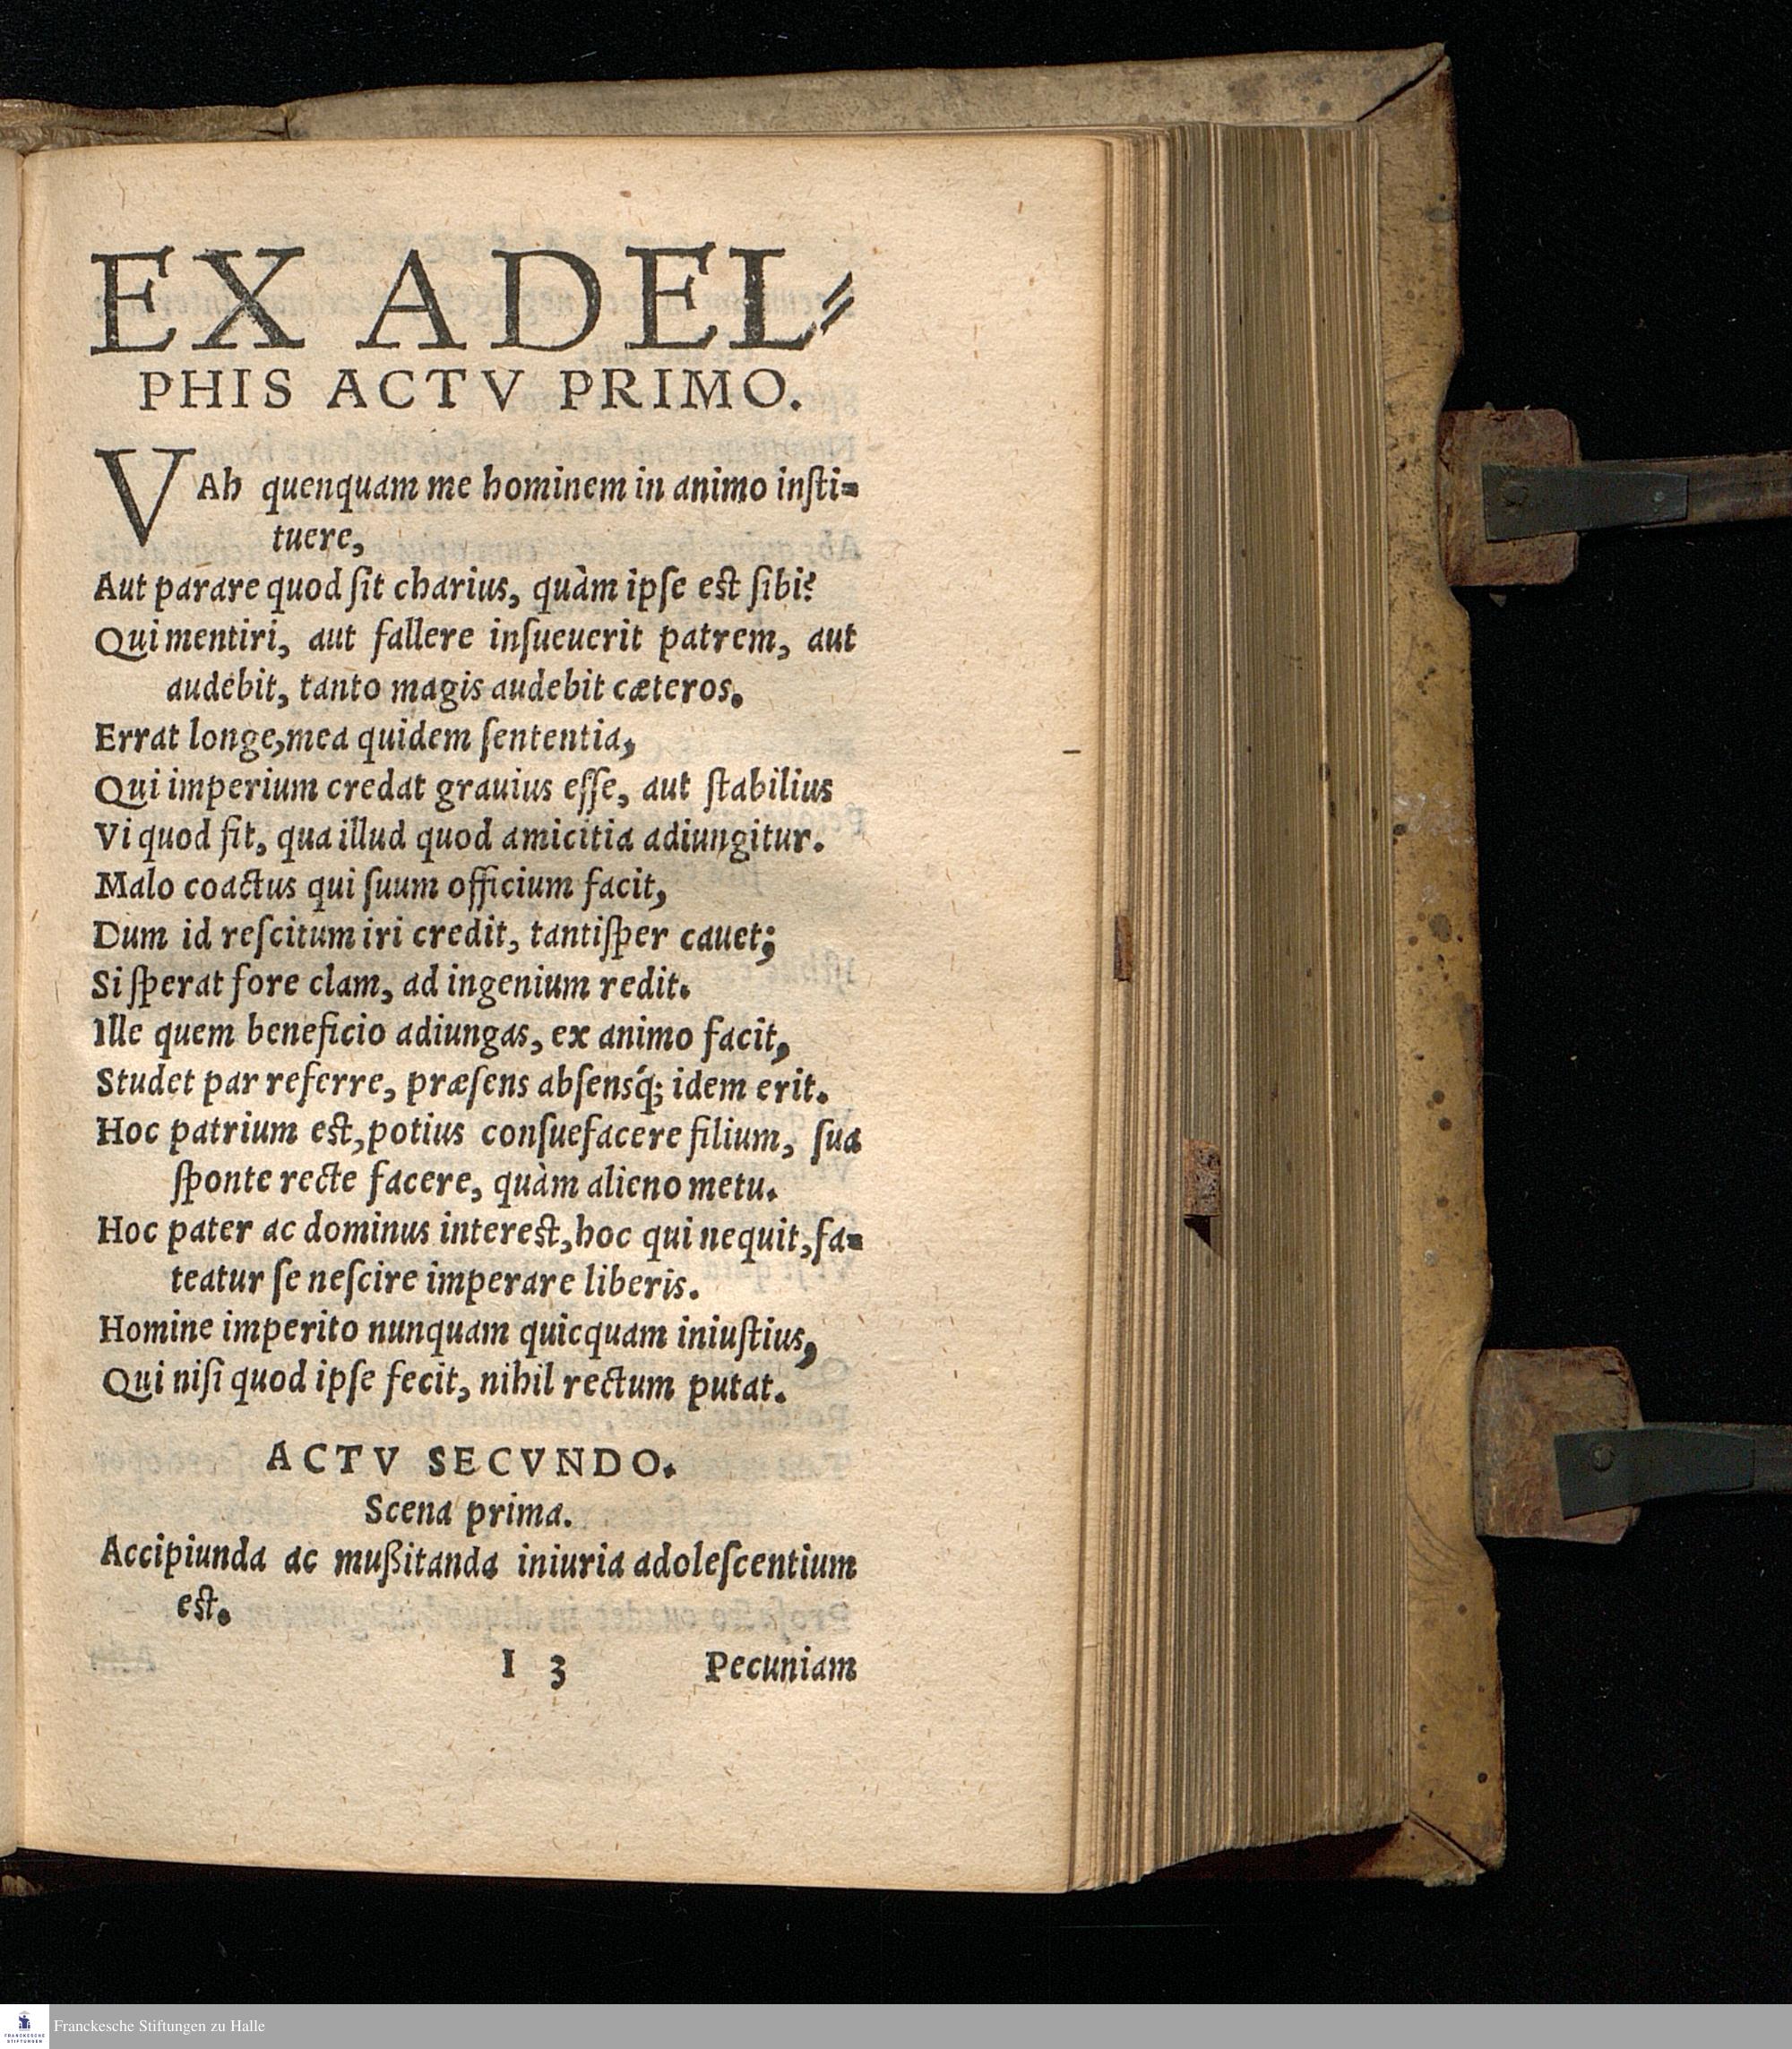 EX ADEL⸗
PHIS ACTV PRIMO.
VAh quenquam me hominem in animo inſti⸗
tuere,
Aut parare quod ſit charius, quàm ipſe eſt ſibi?
Qui mentiri, aut fallere inſueuerit patrem, aut
audebit, tanto magis audebit cæteros.
Errat longe, mea quidem ſententia,
Qui imperium credat grauius eſſe, aut ſtabilius
Vi quod fit, qua illud quod amicitia adiungitur.
Malo coactus qui ſuum officium facit,
Dum id reſcitum iri credit, tantiſper cauet;
Si ſperat fore clam, ad ingenium redit.
Ille quem beneficio adiungas, ex animo facit,
Studet par referre, præſens abſensq́; idem erit.
Hoc patrium eſt, potius conſuefacere filium, ſua
ſponte recte facere, quàm alieno metu.
Hoc pater ac dominus intereſt, hoc qui nequit, fa⸗
teatur ſe neſcire imperare liberis.
Homine imperito nunquam quicquam iniuſtius,
Qui niſi quod ipſe fecit, nihil rectum putat.
ACTV SECVNDO.
Scena prima.
Accipiunda ac mußitanda iniuria adoleſcentium
eſt.
I 3 Pecuniam
FRANCKESCHE
STIFTUNGEN
Franckesche Stiftungen zu Halle